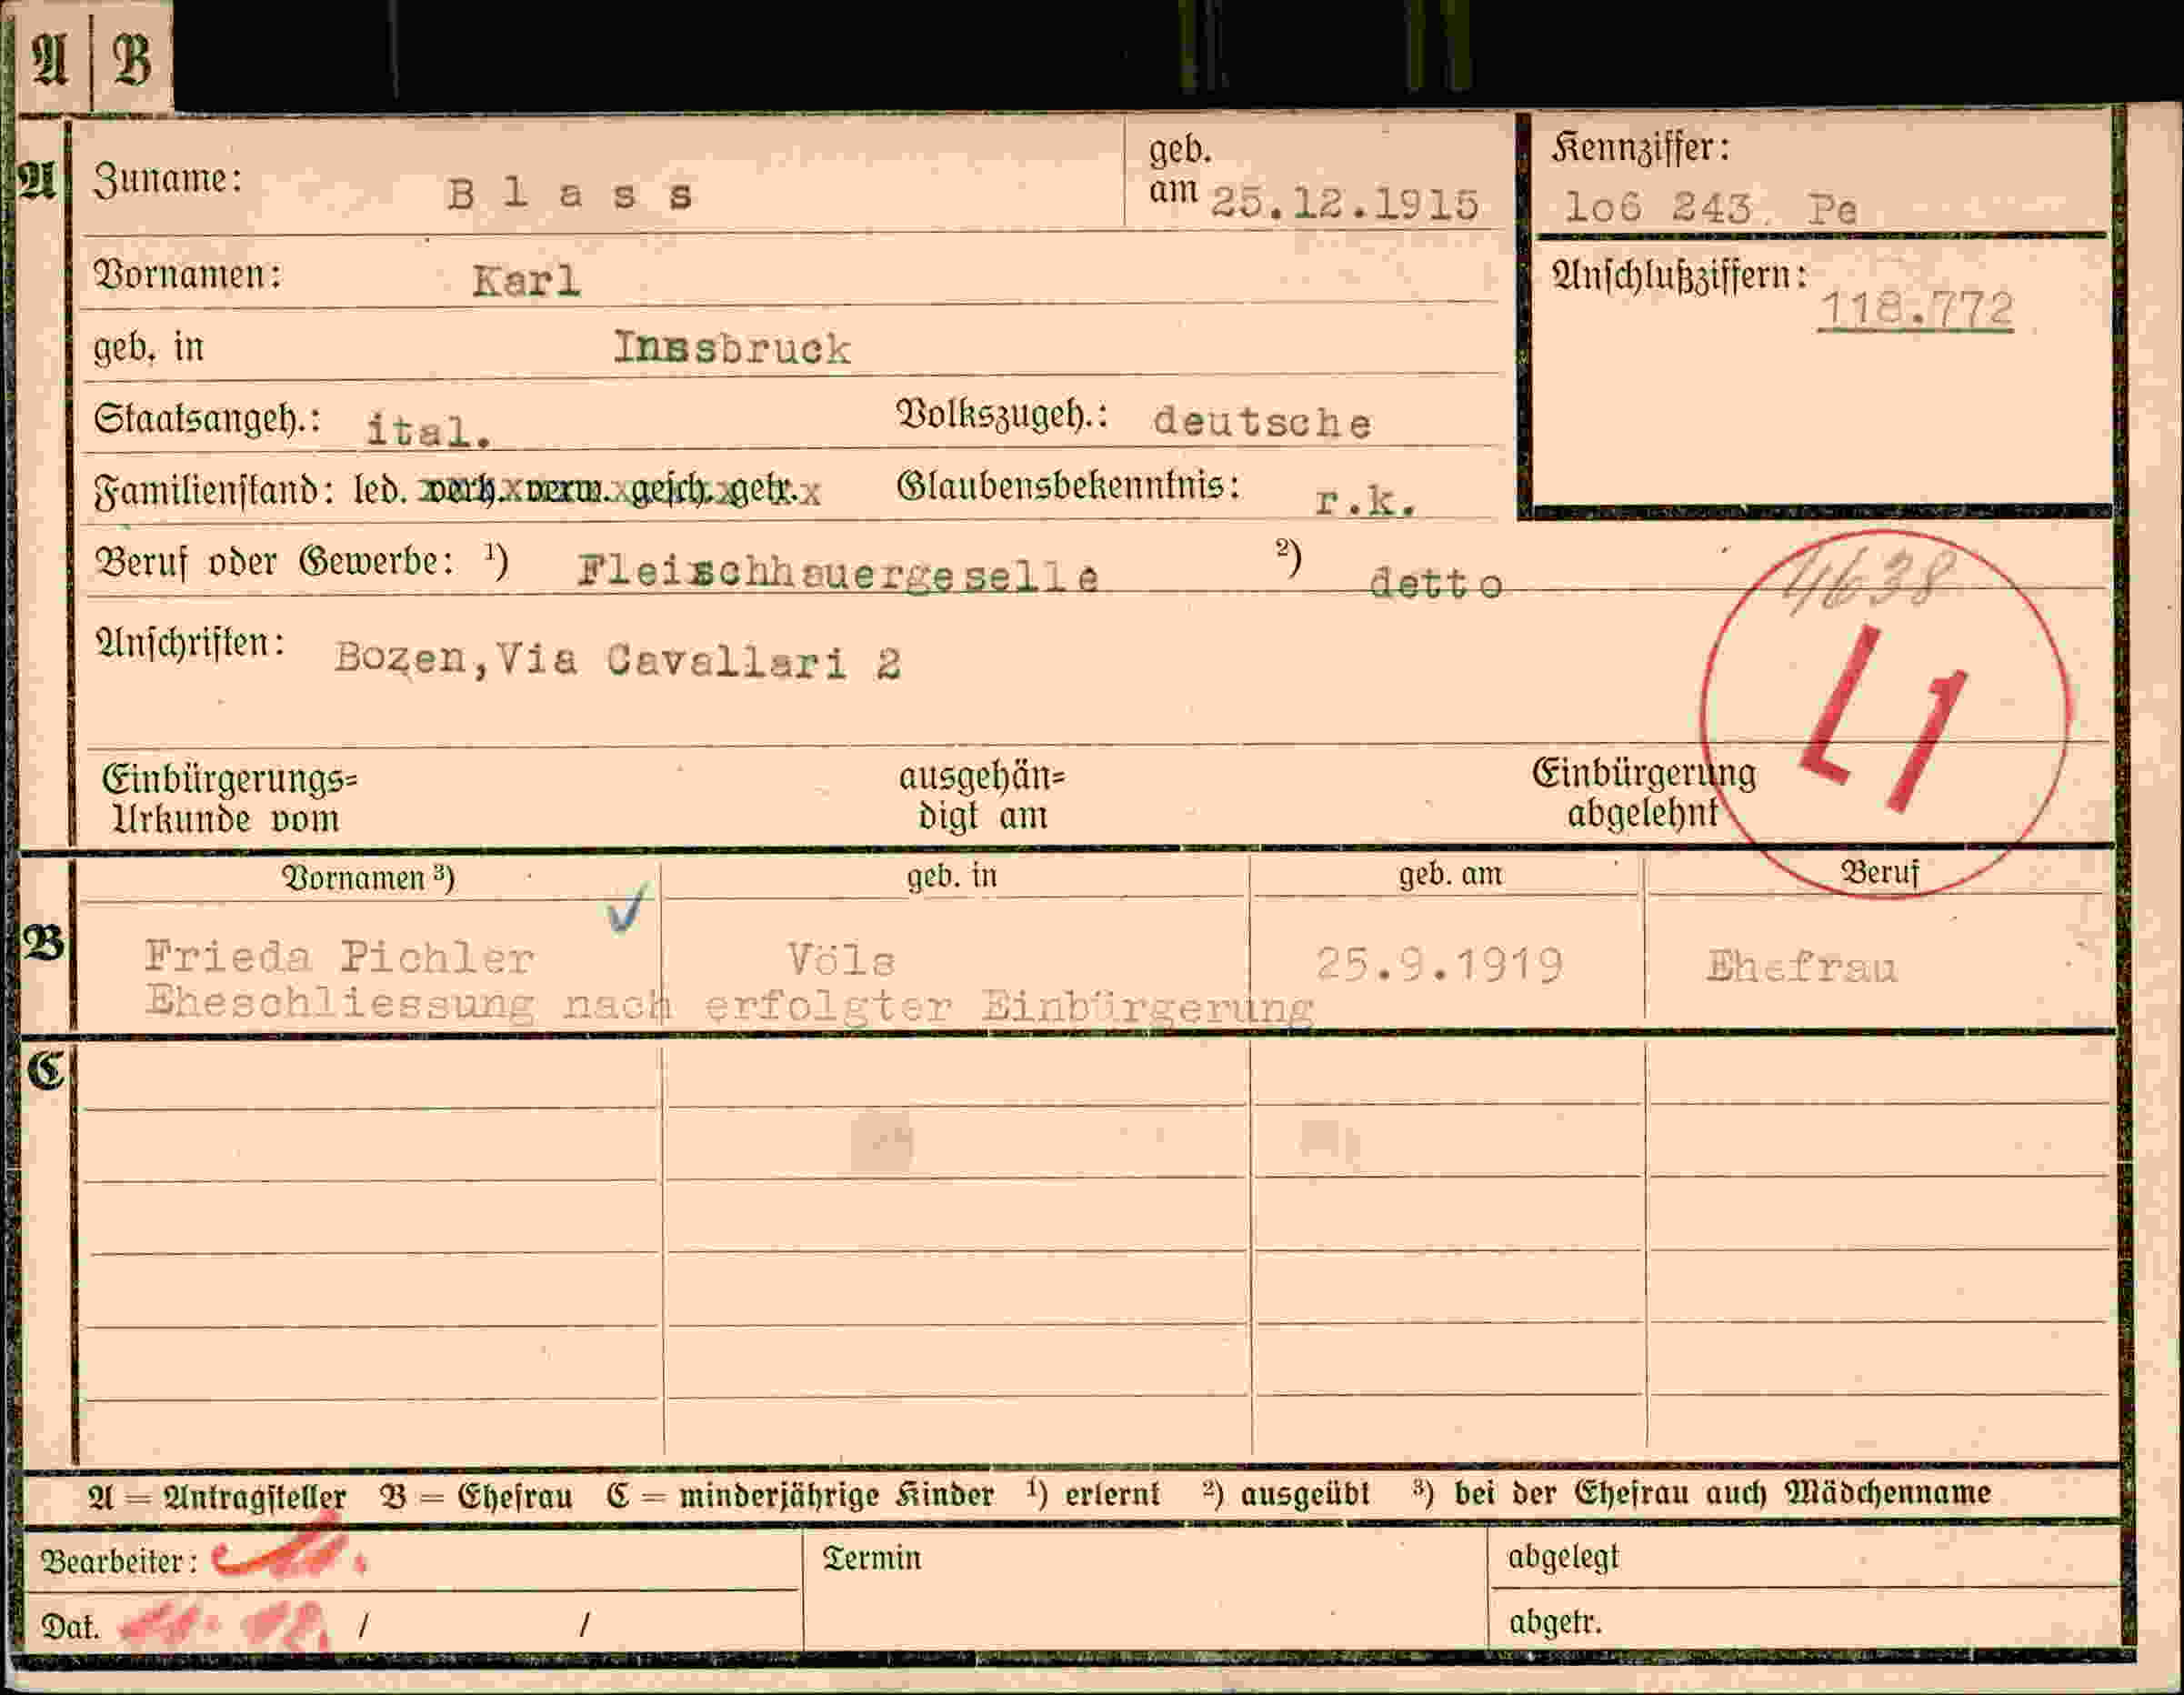 A B
A Zuname: B l a s s geb. am 25.12.1915 Kennziffer: 1o6 243. Pe
Vornamen: Karl Anschlußziffern: 118.772
geb. in Inssbruck
Staatsangeh.: ital. Volkszugeh.: deutsche
Familienstand: led. verh.xverw.xgesch.xgetr.x Glaubensbekenntnis: r.k.
Beruf oder Gewerbe: ¹) Fleischhauergeselle ²) detto
4638
Anschriften: Bozen,Via Cavallari 2
L1
Einbürgerungs= ausgehän= Einbürgerung
Urkunde vom digt am abgelehnt
Vornamen ³) geb. in geb. am Beruf
B Frieda Pichler Völs 25.9.1919 Ehefrau
Eheschliessung nach erfolgter Einbürgerung
C
A = Antragsteller B = Ehefrau C = minderjährige Kinder ¹) erlernt ²) ausgeübt ³) bei der Ehefrau auch Mädchenname
Bearbeiter: Termin abgelegt
Dat. / / abgetr.